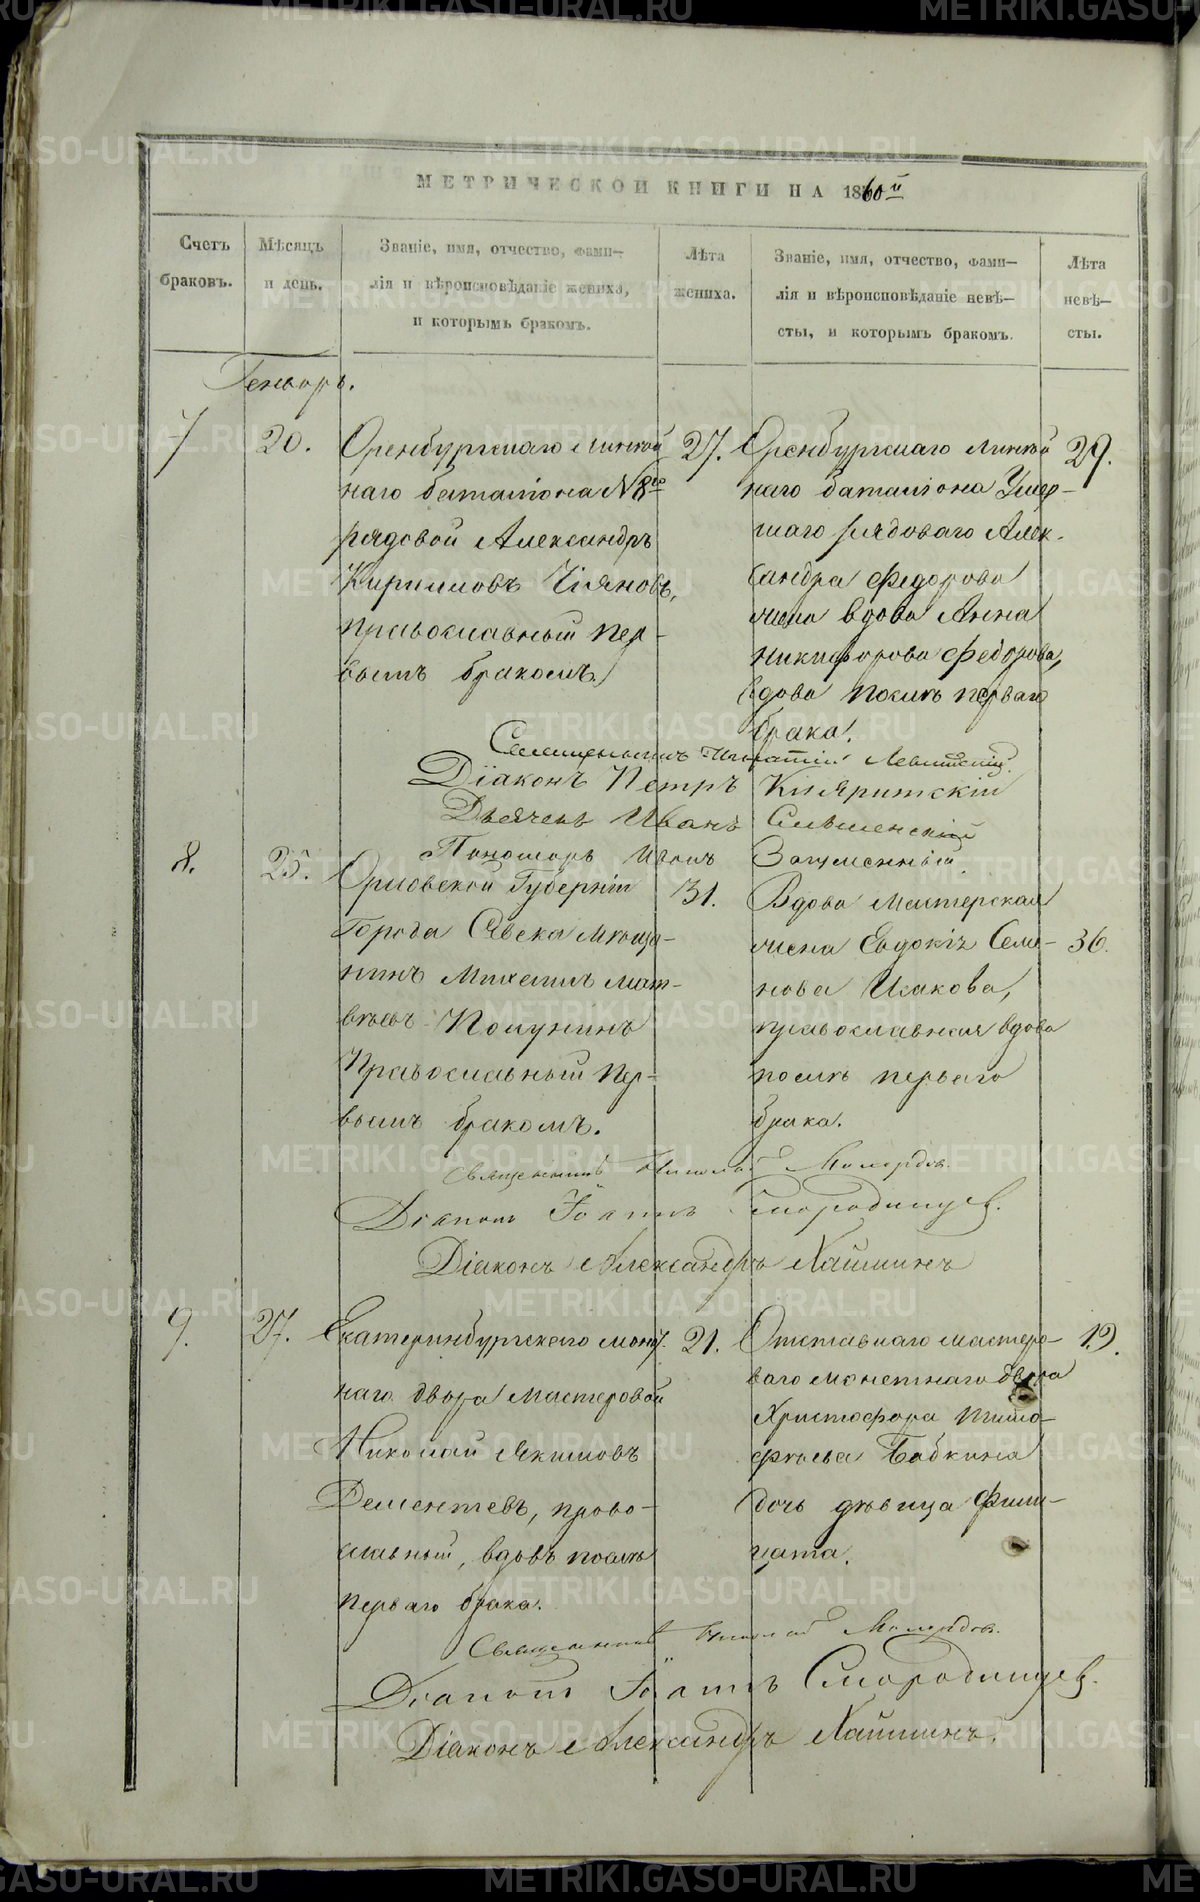 МЕТРИЧЕСКОЙ КНИГИ НА 1860й
Счетъ браковъ.
Мѣсяцъ и день.
Званіе, имя, отчество, фами-
лія и вѣроисповѣданіе жениха,
и которымъ бракомъ.
Лѣта жениха.
Званіе, имя, отчество, фами-
лія и вѣроисповѣданіе невѣ-
сты, и которымъ бракомъ.
Лѣта невѣ-
сты.
Генварь.
7
20.
Оренбургскаго линѣй
наго баталіона №8го
рядовой Александръ
Кирилловъ
православный пер-
вымъ бракомъ
27.
Оренбургскаго линѣй
наго баталіона Умер-
шаго рядоваго Алек-
сандра Федорова
жена вдова Анна
Никифорова Федорова,
вдова послѣ перваго
брака.
29.
Священникъ Игнатій Левитскій
Діаконъ Петръ
Дьячекъ Иванъ
Пономарь Иванъ
8.
25.
Орловской Губерніи
Города Сѣвска мѣща-
нинъ Михаилъ Мат-
вѣевъ Полунинъ
Православный пер-
вымъ бракомъ.
31.
Вдова мастерская
жена Евдокія Семе-
нова Исакова,
православная вдова
послѣ перваго
брака.
36.
Священникъ Николай
Діаконъ Іоаннъ Смородинцевъ.
Діаконъ Александръ Хаймин
9.
27.
Екатеринбургскаго монет-
наго двора мастеровой
Николай Якимовъ
Дементьевъ, право-
славный, вдовъ послѣ
перваго брака.
21.
Отставнаго мастеро-
ваго монетнаго двора
Христофора Тимо-
фѣева Бабкина
дочь дѣвица Фили-
цата.
19.
Священникъ Николай
Діаконъ Іоаннъ Смородинцевъ.
Діаконъ Александръ
METRIKI.GASO-URAL.RU